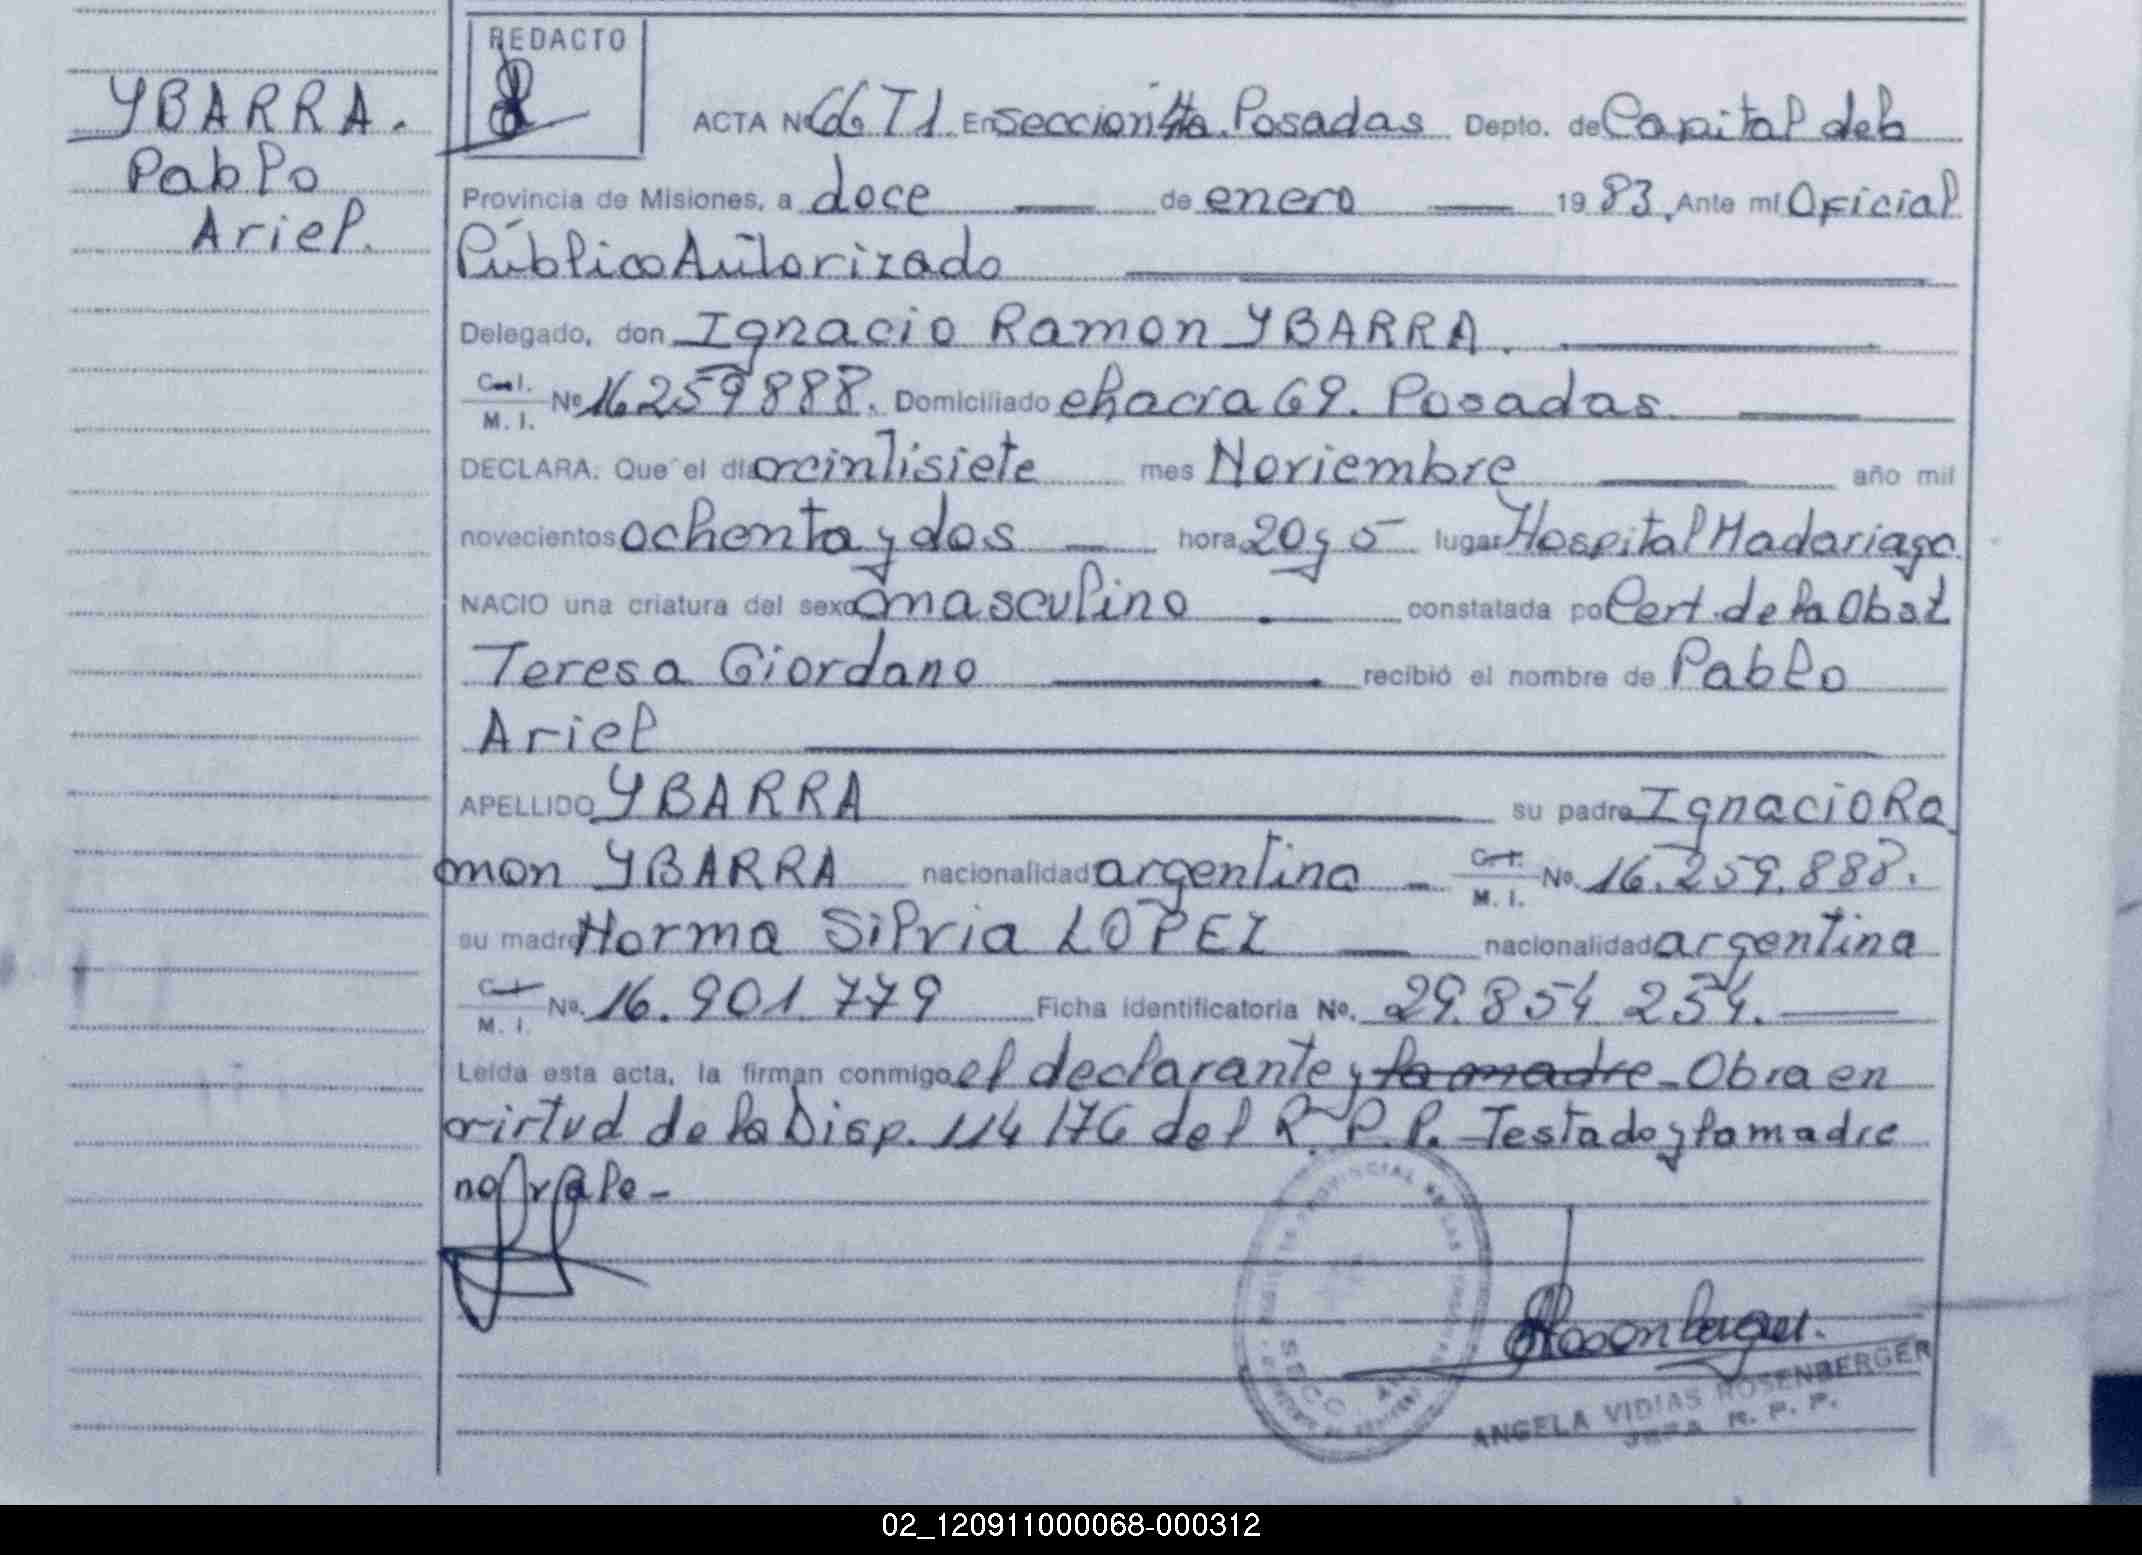 REDACTO
YBARRA.
Pablo
Ariel.
ACTA Nº 66 T1. En Seccion 4ta. Posadas Depto. de Capital de la
Provincia de Misiones, a doce de enero 1983, Ante mí Oficial
Público Autorizado
Delegado, don Ignacio Ramon YBARRA.
C. I. M. I. Nº 16259888. Domiciliado chacra 69. Posadas
DECLARA: Que el día veintisiete mes Noviembre año mil
novecientos ochenta y dos hora 20 y 5 lugar Hospital Madariaga
NACIO una criatura del sexo masculino constatada po Cert. de la Obst
Teresa Giordano recibió el nombre de Pablo
Ariel
APELLIDO YBARRA su padre Ignacio Ra
mon YBARRA nacionalidad argentina C. I. M. I. No. 16.259.888.
su madre Norma Silvia LOPEZ nacionalidad argentina
C. I. M. I. No. 16.901.779 Ficha identificatoria No. 29.854 254.
Leída esta acta, la firman conmigo el declarante y la madre - Obra en
virtud de la Disp. 114/76 del R.P.P. - Testado y la madre
no vale -
SECC
Rosenberger.
ANGELA VIDIAS ROSENBERGER
JEFA R. P. P.
02_120911000068-000312